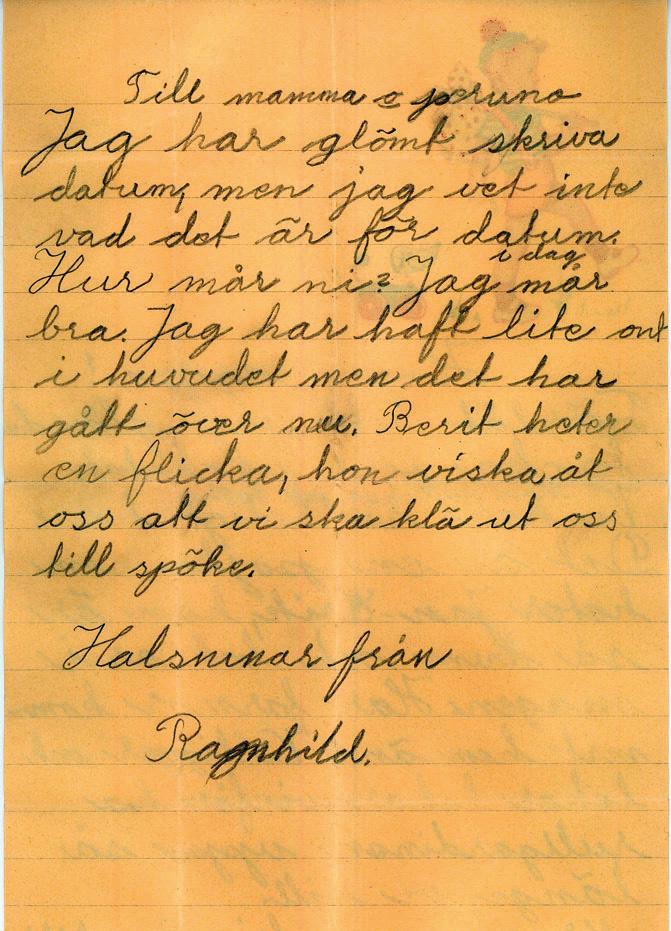 Till mamma o peruno
Jag har glömt skriva
datum, men jag vet inte
vad det är för datum.
i dag
Hur mår ni? Jag mår
bra. Jag har haft lite ont
i huvudet men det har
gått över nu. Berit heter
en flicka, hon viska åt
oss att vi ska klä ut oss
till spöke.
Halsninar från
Ragnhild.